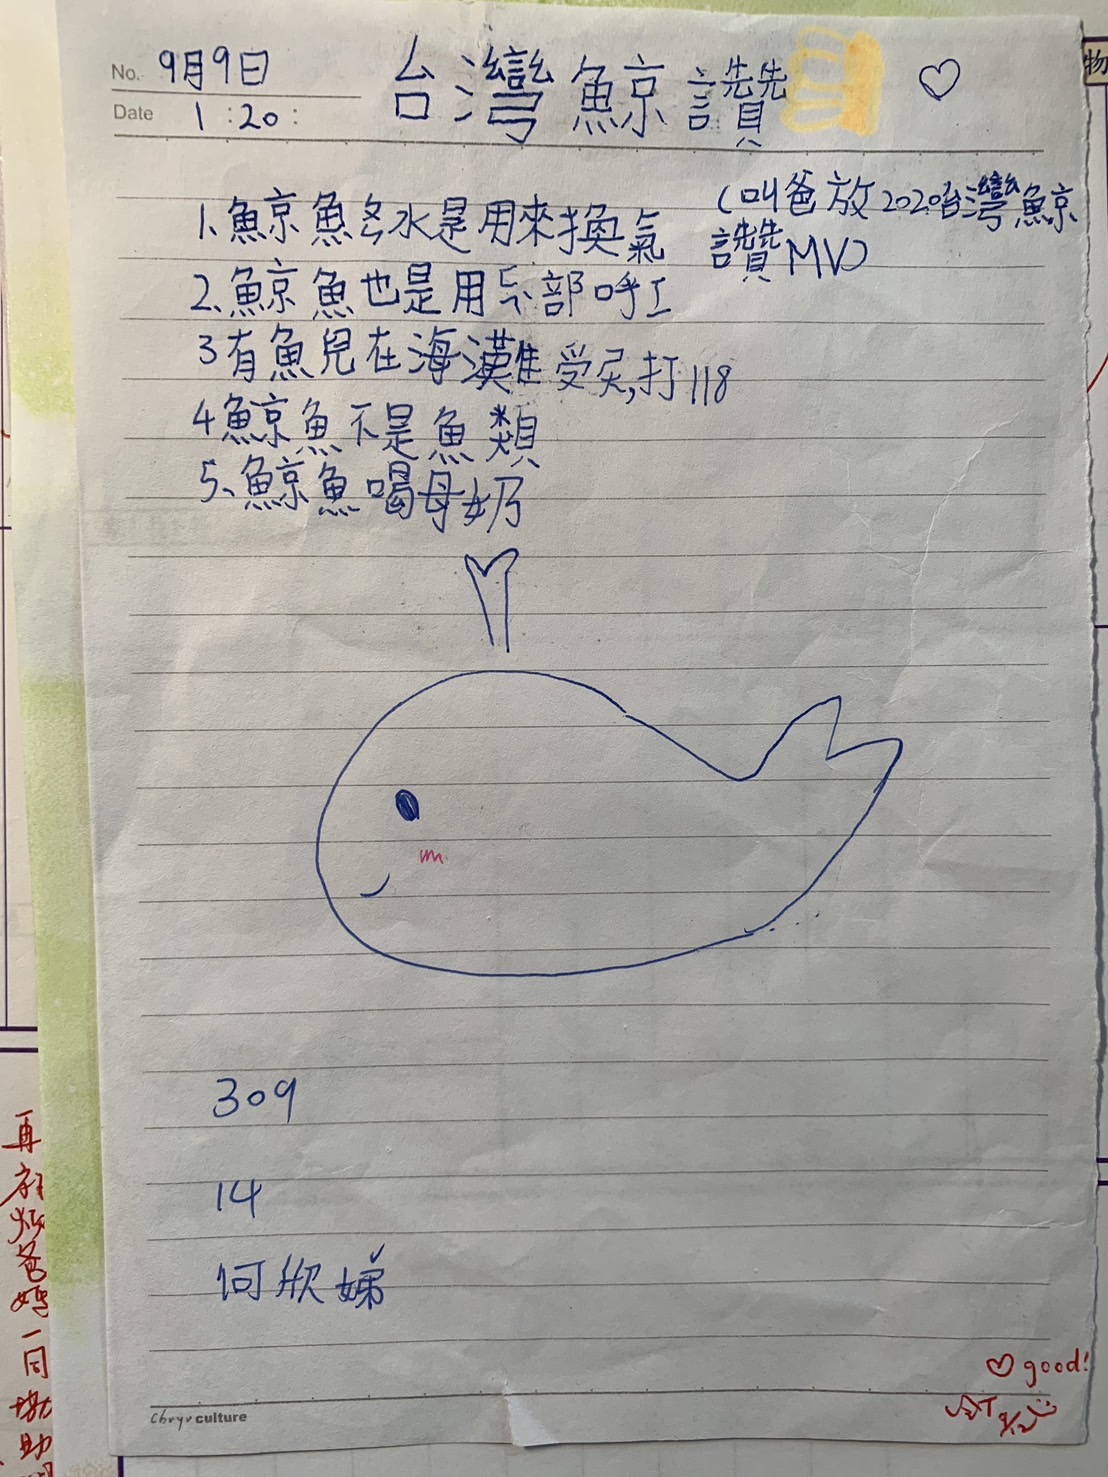 No. 9月9日
Date 1:20:
台灣鯨讚
(叫爸放2020台灣鯨
讚MV)
1.鯨魚多水是用來換氣
2.鯨魚也是用 部呼
3有魚兒在海灘受 ,打118
4鯨魚不是魚類
5.鯨魚喝母奶
309
14
何欣娣
good!
9/12
culture
物
再麻煩爸媽一同
協助